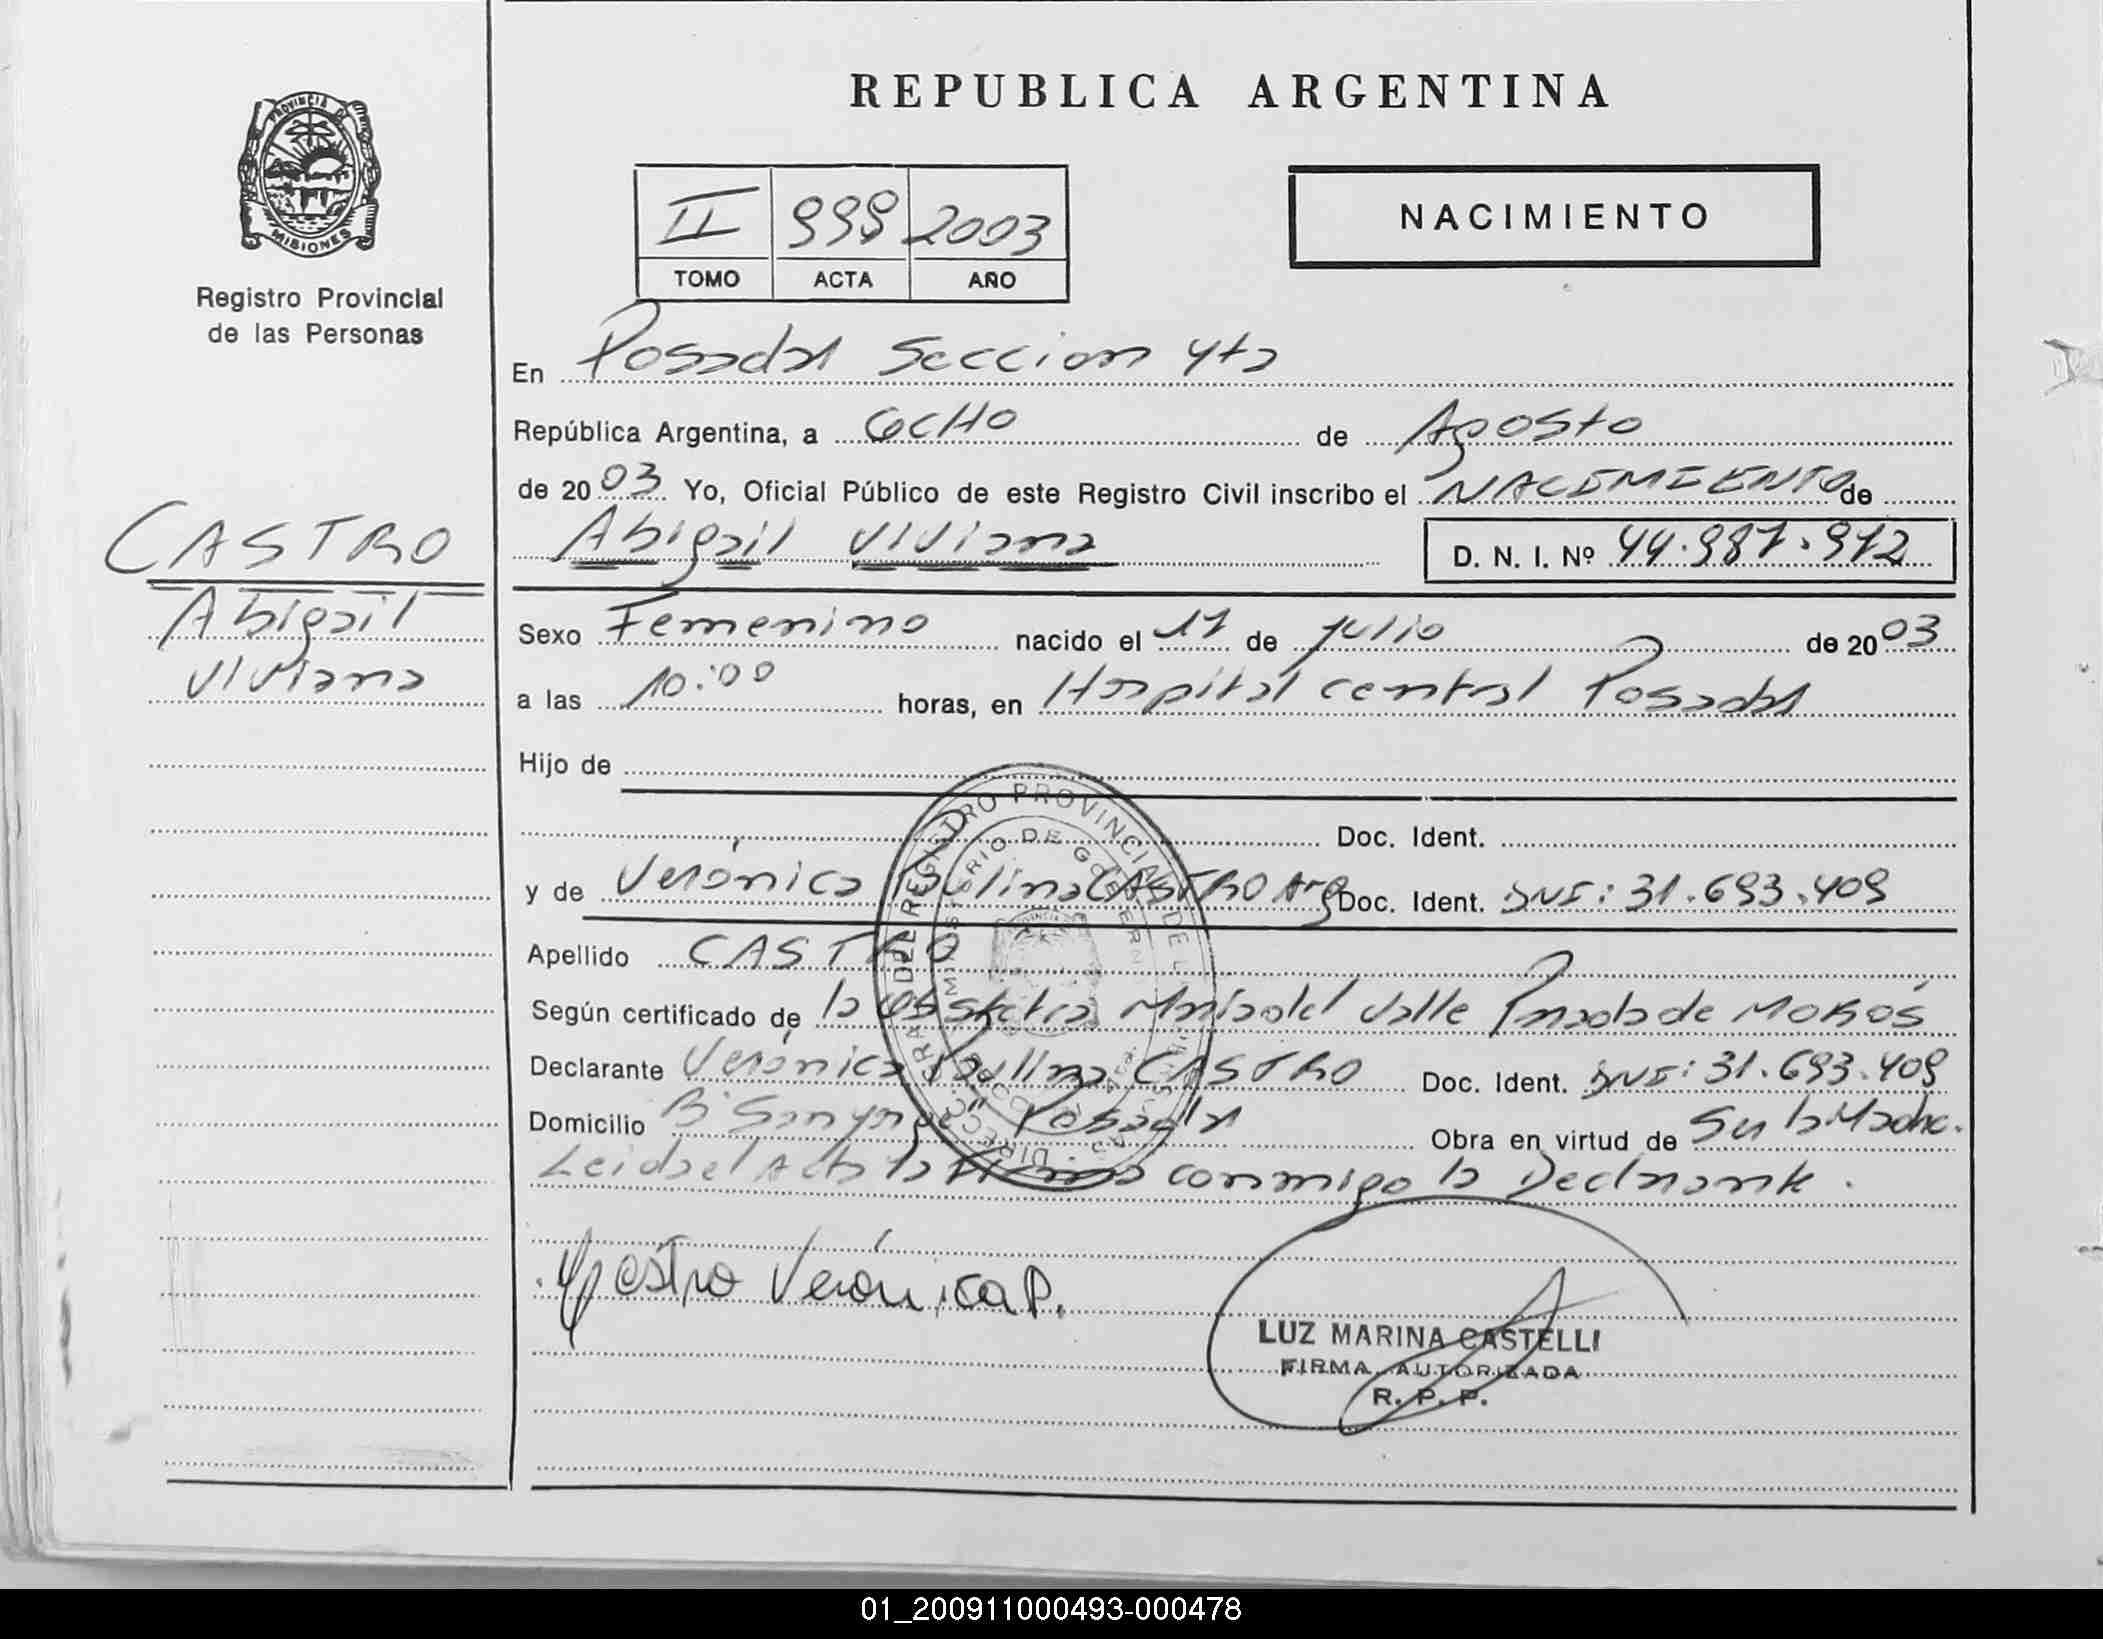 REPUBLICA ARGENTINA
PROVINCIA DE MISIONES
Registro Provincial
de las Personas
II 999 2003
TOMO ACTA AÑO
NACIMIENTO
En Posadas Seccion 4ta
República Argentina, a OCHO de Agosto
de 2003 Yo, Oficial Público de este Registro Civil inscribo el NACIMIENTO de
Abigail Viviana D. N. I. Nº 44.987.972
CASTRO
Abigail
Viviana
Sexo Femenino nacido el 17 de Julio de 2003
a las 10:00 horas, en Hospital central Posadas
Hijo de
Doc. Ident.
y de Verónica Paulina CASTRO Arg Doc. Ident. DNI: 31.693.409
Apellido CASTRO
Según certificado de la Obstetra Marisa del Valle Posada de
Declarante Verónica Paulina CASTRO Doc. Ident. DNI: 31.693.409
Domicilio Posadas Obra en virtud de Su la Madre.
Leida el Acta la Firma conmigo la Declarante.
Castro Verónica P.
LUZ MARINA CASTELLI
FIRMA AUTORIZADA
R. P. P.
01_200911000493-000478